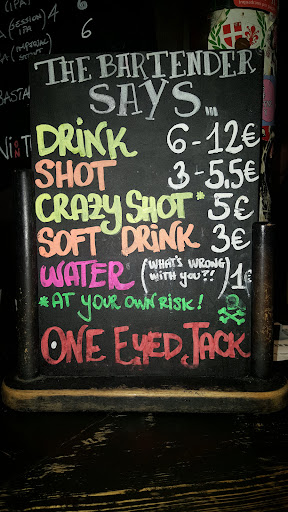 (IPA)
A (SESSION 4
IPA
A (IMPERIAL 6
STOUT
BASTA
THE BARTENDER
SAYS...
DRINK 6-12€
SHOT 3-5.5€
CRAZY SHOT* 5€
SOFT DRINK 3€
WATER (WHAT'S WRONG WITH YOU?!) 1€
*AT YOUR OWN RISK!
ONE EYED JACK